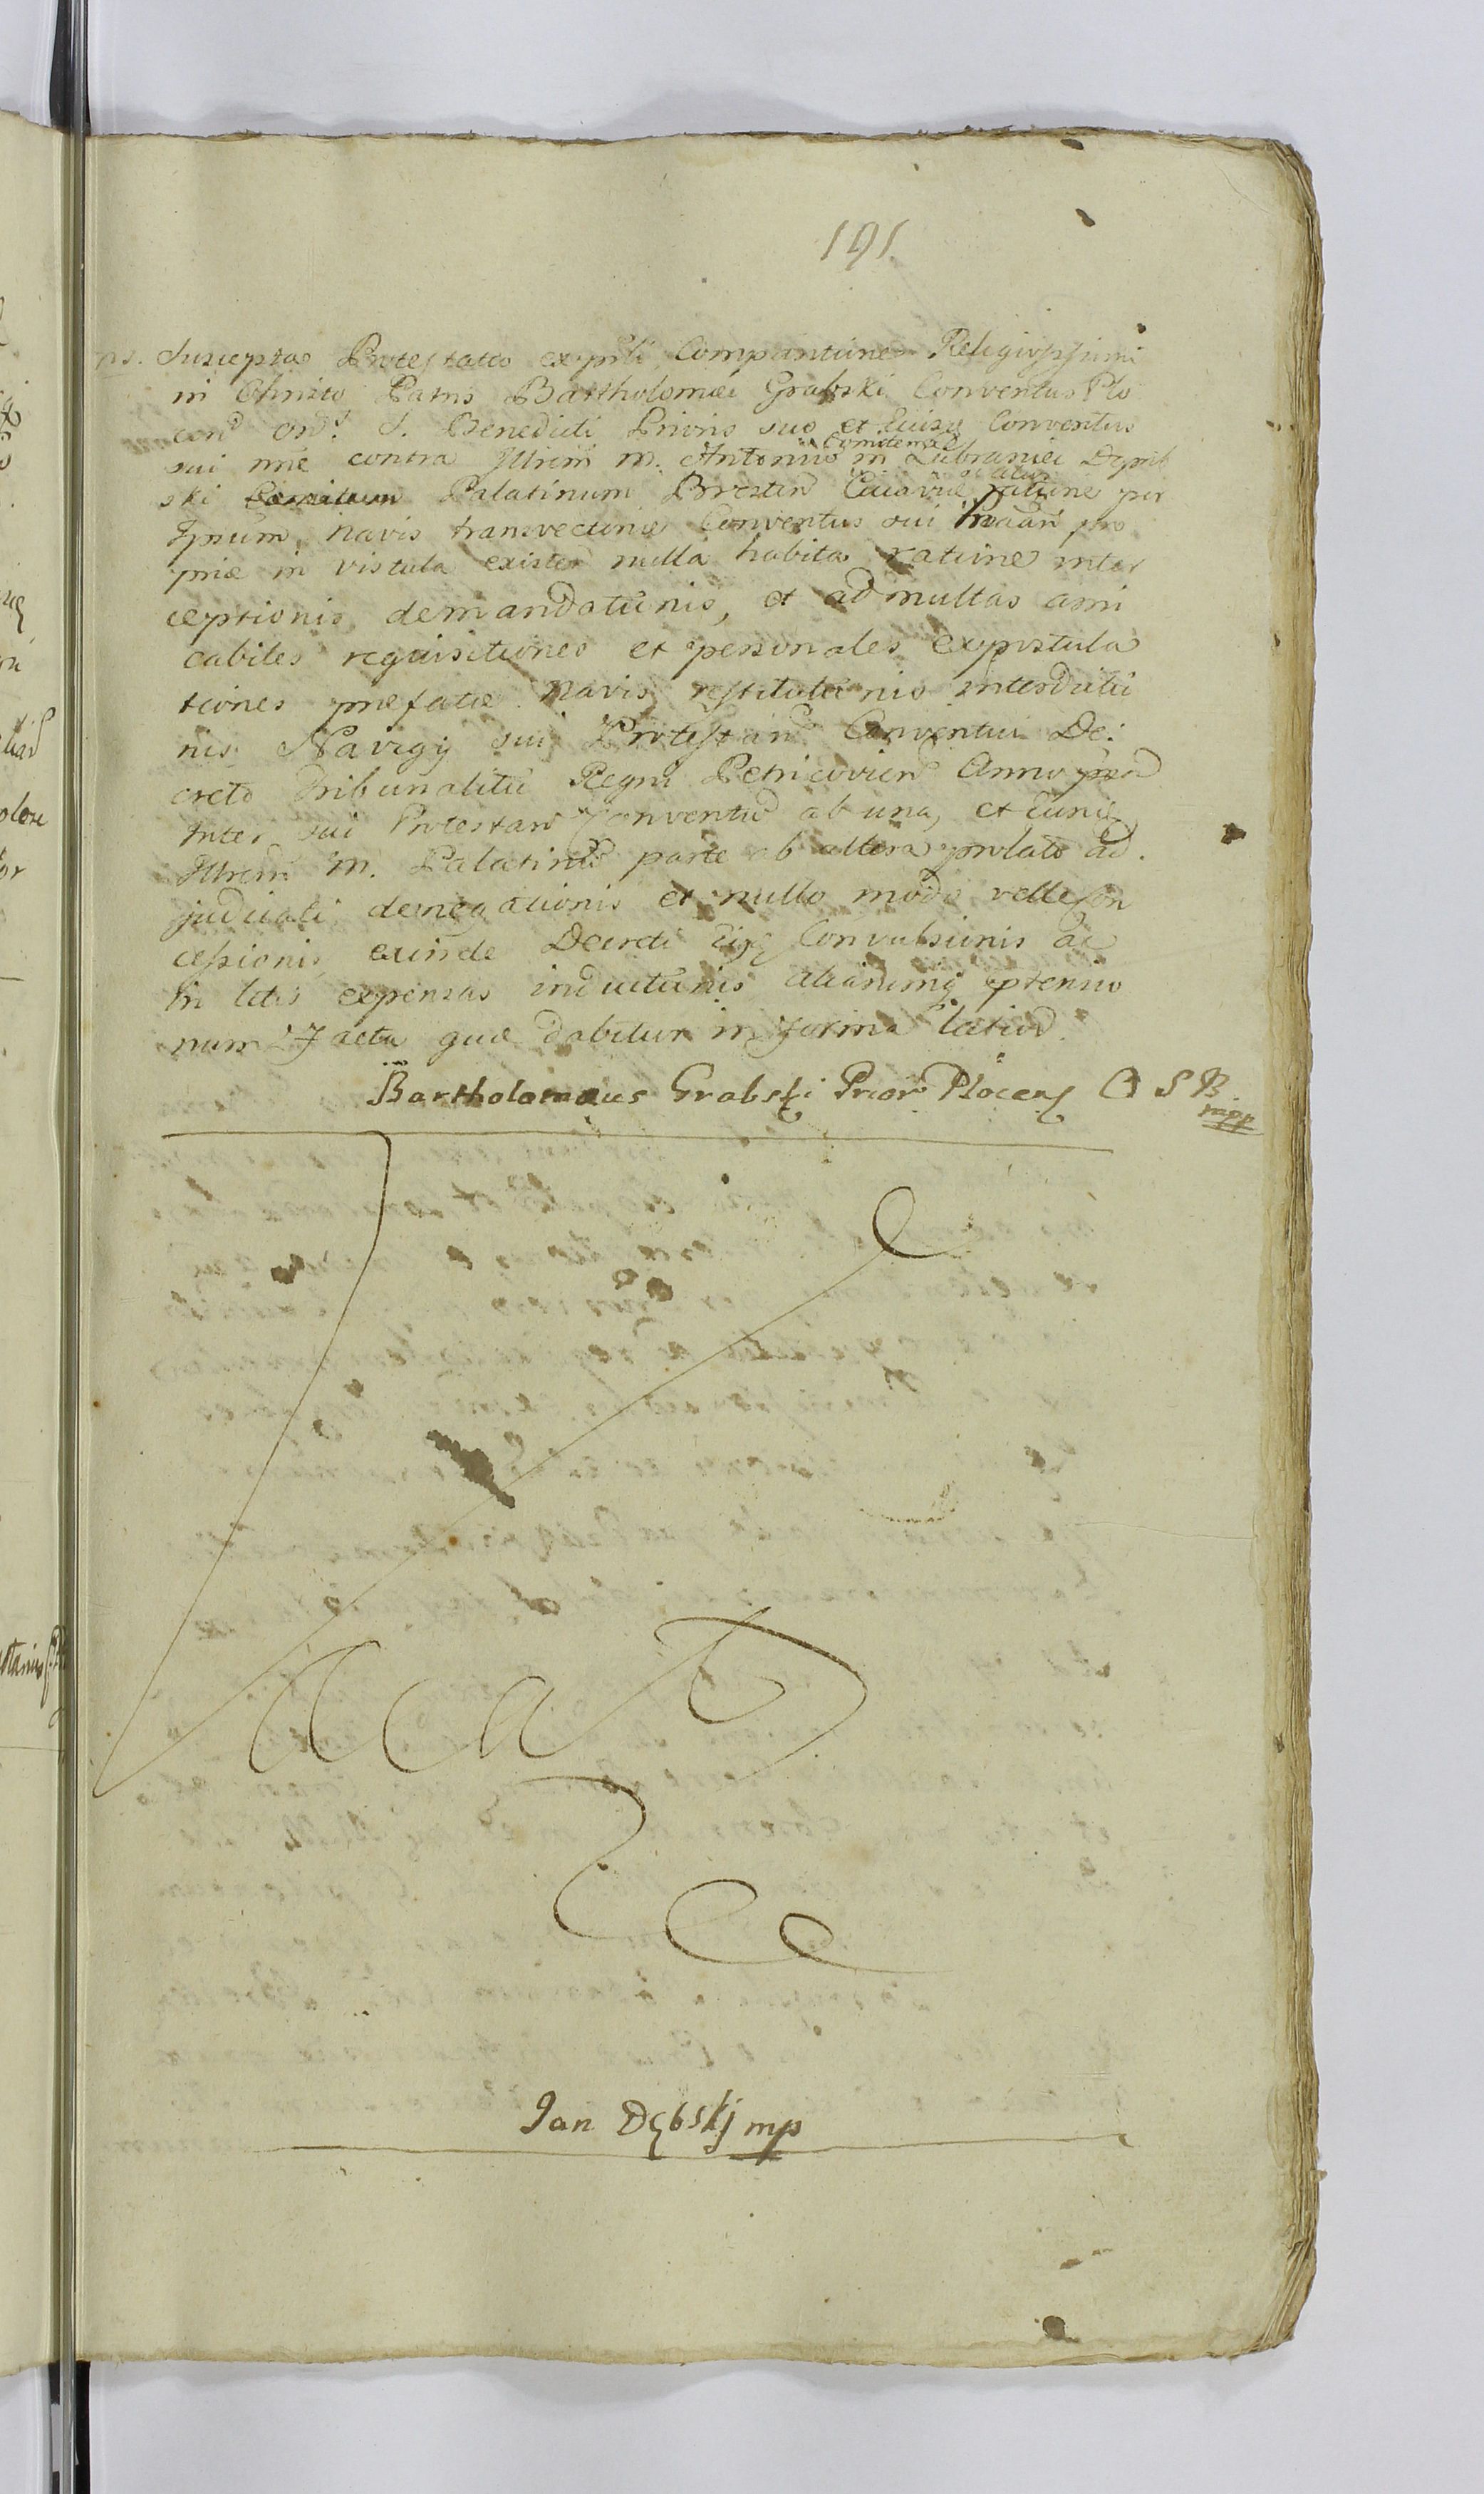 191
ns. Suscepta Protestatio ex pñti Comparitione Religiosissimi
in Christo Patris Bartholomæi Grabski Conventus Plo
cen Ord. S. Benedicti Prioris suo et Eiusq Conventus
sui nne contra Illrem M. Antonium Comitem in Lubraniec Dąmb
ski Palatinum Bresten Cuiaviæ ratione per
Ipsum navis transvectoriæ Conventus sui pro
priæ in Vistula existen nulla habita ratione inter
ceptionis demandationis, et ad multas ami
cabiles requisitiones et personales expostula
tiones præfatæ navis restitutionis interdictio
nis Navigij sui Protestan Conventui De:
creto Tribunalitio Regni Petricovien Anno
Inter sui Protestan Conventum ab una, et Eundq
Illrem M. Palatinum parte ab altera prolato ad
judicati denegationis et nullo modo velle con
cessionis exinde Decreti Eiusq Convulsionis ac
in litis expensas inductionis aliarumq præmisso
rum Facta quæ dabitur in forma latiori
Bartholomæus Grabski Prior Plocens O S B.
mpp
Vacat
Jan Dębskj mp